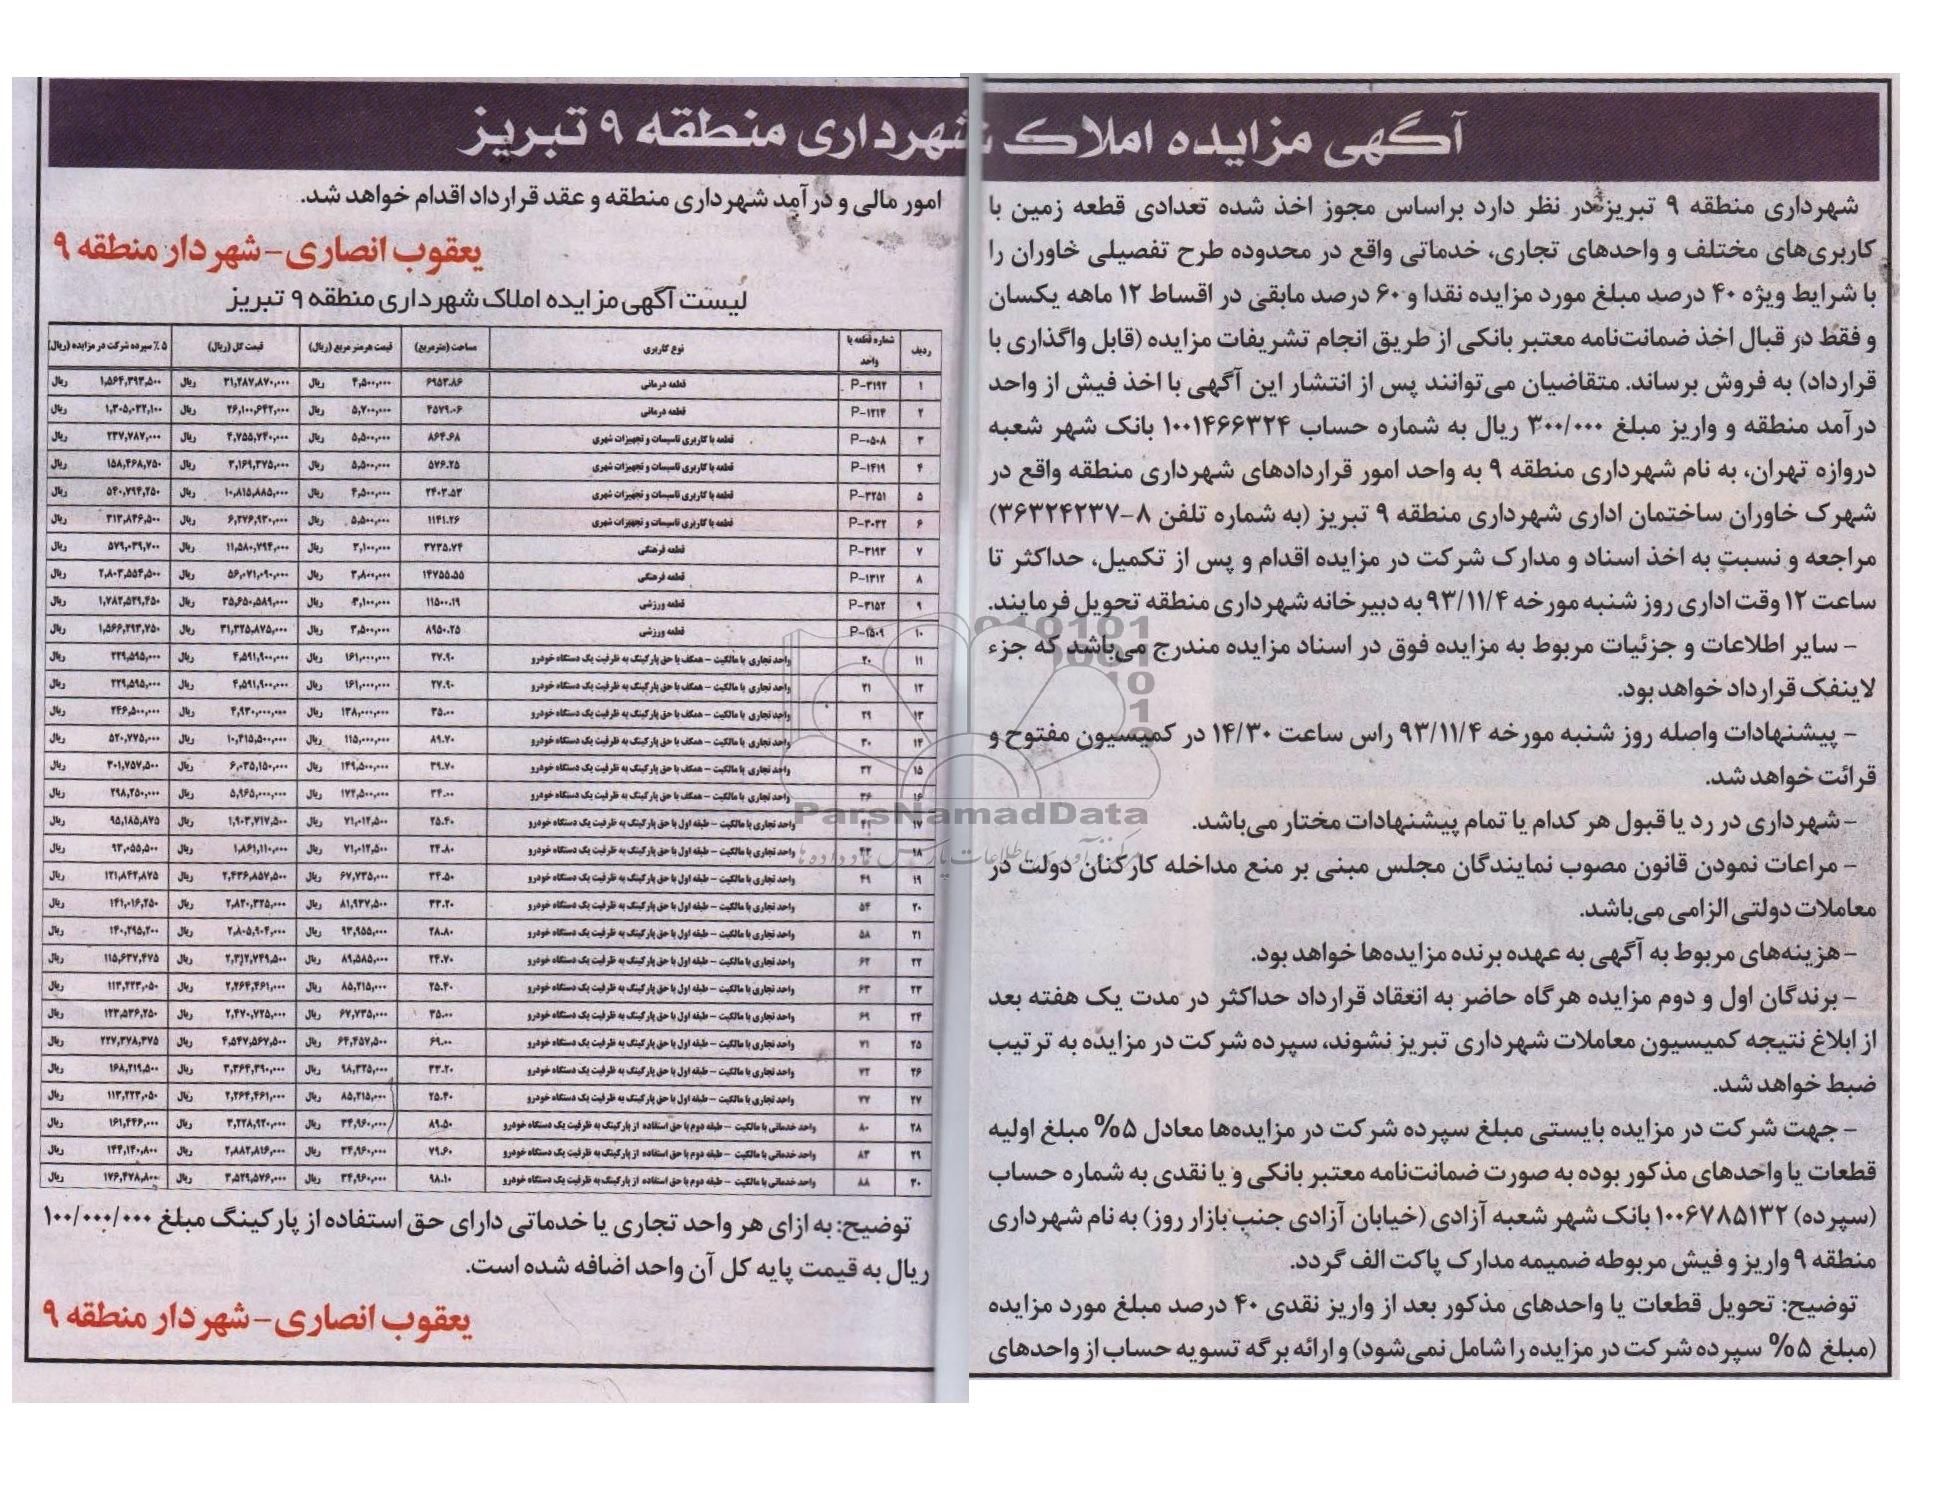 آگهی مزایده املاک شهرداری منطقه ۹ تبریز
شهرداری منطقه ۹ تبریز در نظر دارد براساس مجوز اخذ شده تعدادی قطعه زمین با
کاربری‌های مختلف و واحدهای تجاری، خدماتی واقع در محدوده طرح تفصیلی خاوران را
با شرایط ویژه ۴۰ درصد مبلغ مورد مزایده نقدا و ۶۰ درصد مابقی در اقساط ۱۲ ماهه یکسان
و فقط در قبال اخذ ضمانت‌نامه معتبر بانکی از طریق انجام تشریفات مزایده (قابل واگذاری با
قرارداد) به فروش برساند. متقاضیان می‌توانند پس از انتشار این آگهی با اخذ فیش از واحد
درآمد منطقه و واریز مبلغ ۳۰۰/۰۰۰ ریال به شماره حساب ۱۰۰۱۴۶۶۳۲۴ بانک شهر شعبه
دروازه تهران، به نام شهرداری منطقه ۹ به واحد امور قراردادهای شهرداری منطقه واقع در
شهرک خاوران ساختمان اداری شهرداری منطقه ۹ تبریز (به شماره تلفن ۸-۳۶۳۲۴۲۳۷)
مراجعه و نسبت به اخذ اسناد و مدارک شرکت در مزایده اقدام و پس از تکمیل، حداکثر تا
ساعت ۱۲ وقت اداری روز شنبه مورخه ۹۳/۱۱/۴ به دبیرخانه شهرداری منطقه تحویل فرمایند.
- سایر اطلاعات و جزئیات مربوط به مزایده فوق در اسناد مزایده مندرج می‌باشد که جزء
لاینفک قرارداد خواهد بود.
- پیشنهادات واصله روز شنبه مورخه ۹۳/۱۱/۴ راس ساعت ۱۴/۳۰ در کمیسیون مفتوح و
قرائت خواهد شد.
- شهرداری در رد یا قبول هر کدام یا تمام پیشنهادات مختار می‌باشد.
- مراعات نمودن قانون مصوب نمایندگان مجلس مبنی بر منع مداخله کارکنان دولت در
معاملات دولتی الزامی می‌باشد.
- هزینه‌های مربوط به آگهی به عهده برنده مزایده‌ها خواهد بود.
- برندگان اول و دوم مزایده هرگاه حاضر به انعقاد قرارداد حداکثر در مدت یک هفته بعد
از ابلاغ نتیجه کمیسیون معاملات شهرداری تبریز نشوند، سپرده شرکت در مزایده به ترتیب
ضبط خواهد شد.
- جهت شرکت در مزایده بایستی مبلغ سپرده شرکت در مزایده‌ها معادل ۵% مبلغ اولیه
قطعات یا واحدهای مذکور بوده به صورت ضمانت‌نامه معتبر بانکی و یا نقدی به شماره حساب
(سپرده) ۱۰۰۶۷۸۵۱۳۲ بانک شهر شعبه آزادی (خیابان آزادی جنب بازار روز) به نام شهرداری
منطقه ۹ واریز و فیش مربوطه ضمیمه مدارک پاکت الف گردد.
توضیح: تحویل قطعات یا واحدهای مذکور بعد از واریز نقدی ۴۰ درصد مبلغ مورد مزایده
(مبلغ ۵% سپرده شرکت در مزایده را شامل نمی‌شود) و ارائه برگه تسویه حساب از واحدهای
امور مالی و درآمد شهرداری منطقه و عقد قرارداد اقدام خواهد شد.
یعقوب انصاری-شهردار منطقه ۹
لیست آگهی مزایده املاک شهرداری منطقه ۹ تبریز
ردیف شماره قطعه یا واحد نوع کاربری مساحت (مترمربع) قیمت هرمتر مربع (ریال) قیمت کل (ریال) ۵٪ سپرده شرکت در مزایده (ریال)
۱ P-۳۱۹۲ قطعه درمانی ۶۹۵۳.۸۶ ۴,۵۰۰,۰۰۰ ریال ۳۱,۲۸۷,۸۷۰,۰۰۰ ریال ۱,۵۶۴,۳۹۳,۵۰۰ ریال
۲ P-۱۲۱۴ قطعه درمانی ۴۵۷۹.۰۶ ۵,۷۰۰,۰۰۰ ریال ۲۶,۱۰۰,۶۴۲,۰۰۰ ریال ۱,۳۰۵,۰۳۲,۱۰۰ ریال
۳ P-۰۵۰۸ قطعه با کاربری تاسیسات و تجهیزات شهری ۸۶۴.۶۸ ۵,۵۰۰,۰۰۰ ریال ۴,۷۵۵,۷۴۰,۰۰۰ ریال ۲۳۷,۷۸۷,۰۰۰ ریال
۴ P-۱۴۱۹ قطعه با کاربری تاسیسات و تجهیزات شهری ۵۷۶.۲۵ ۵,۵۰۰,۰۰۰ ریال ۳,۱۶۹,۳۷۵,۰۰۰ ریال ۱۵۸,۴۶۸,۷۵۰ ریال
۵ P-۳۲۵۱ قطعه با کاربری تاسیسات و تجهیزات شهری ۲۴۰۳.۵۳ ۴,۵۰۰,۰۰۰ ریال ۱۰,۸۱۵,۸۸۵,۰۰۰ ریال ۵۴۰,۷۹۴,۲۵۰ ریال
۶ P-۳۰۳۲ قطعه با کاربری تاسیسات و تجهیزات شهری ۱۱۴۱.۲۶ ۵,۵۰۰,۰۰۰ ریال ۶,۲۷۶,۹۳۰,۰۰۰ ریال ۳۱۳,۸۴۶,۵۰۰ ریال
۷ P-۳۱۹۳ قطعه فرهنگی ۳۷۳۵.۷۴ ۳,۱۰۰,۰۰۰ ریال ۱۱,۵۸۰,۷۹۴,۰۰۰ ریال ۵۷۹,۰۳۹,۷۰۰ ریال
۸ P-۱۳۱۲ قطعه فرهنگی ۱۴۷۵۵.۵۵ ۳,۸۰۰,۰۰۰ ریال ۵۶,۰۷۱,۰۹۰,۰۰۰ ریال ۲,۸۰۳,۵۵۴,۵۰۰ ریال
۹ P-۳۱۵۲ قطعه ورزشی ۱۱۵۰۰.۱۹ ۳,۱۰۰,۰۰۰ ریال ۳۵,۶۵۰,۵۸۹,۰۰۰ ریال ۱,۷۸۲,۵۲۹,۴۵۰ ریال
۱۰ P-۱۵۰۹ قطعه ورزشی ۸۹۵۰.۲۵ ۳,۵۰۰,۰۰۰ ریال ۳۱,۳۲۵,۸۷۵,۰۰۰ ریال ۱,۵۶۶,۲۹۳,۷۵۰ ریال
۱۱ ۲۰ واحد تجاری با مالکیت - همکف با حق پارکینگ به ظرفیت یک دستگاه خودرو ۲۷.۹۰ ۱۶۱,۰۰۰,۰۰۰ ریال ۴,۵۹۱,۹۰۰,۰۰۰ ریال ۲۲۹,۵۹۵,۰۰۰ ریال
۱۲ ۲۱ واحد تجاری با مالکیت - همکف با حق پارکینگ به ظرفیت یک دستگاه خودرو ۲۷.۹۰ ۱۶۱,۰۰۰,۰۰۰ ریال ۴,۵۹۱,۹۰۰,۰۰۰ ریال ۲۲۹,۵۹۵,۰۰۰ ریال
۱۳ ۲۹ واحد تجاری با مالکیت - همکف با حق پارکینگ به ظرفیت یک دستگاه خودرو ۳۵.۰۰ ۱۳۸,۰۰۰,۰۰۰ ریال ۴,۹۳۰,۰۰۰,۰۰۰ ریال ۲۴۶,۵۰۰,۰۰۰ ریال
۱۴ ۳۰ واحد تجاری با مالکیت - همکف با حق پارکینگ به ظرفیت یک دستگاه خودرو ۸۹.۷۰ ۱۱۵,۰۰۰,۰۰۰ ریال ۱۰,۴۱۵,۵۰۰,۰۰۰ ریال ۵۲۰,۷۷۵,۰۰۰ ریال
۱۵ ۳۲ واحد تجاری با مالکیت - همکف با حق پارکینگ به ظرفیت یک دستگاه خودرو ۳۹.۷۰ ۱۴۹,۵۰۰,۰۰۰ ریال ۶,۰۳۵,۱۵۰,۰۰۰ ریال ۳۰۱,۷۵۷,۵۰۰ ریال
۱۶ ۳۶ واحد تجاری با مالکیت - همکف با حق پارکینگ به ظرفیت یک دستگاه خودرو ۳۴.۰۰ ۱۷۲,۵۰۰,۰۰۰ ریال ۵,۹۶۵,۰۰۰,۰۰۰ ریال ۲۹۸,۲۵۰,۰۰۰ ریال
۱۷ واحد تجاری با مالکیت - طبقه اول با حق پارکینگ به ظرفیت یک دستگاه خودرو ۲۵.۴۰ ۷۱,۰۱۲,۵۰۰ ریال ۱,۹۰۳,۷۱۷,۵۰۰ ریال ۹۵,۱۸۵,۸۷۵ ریال
۱۸ ۴۳ واحد تجاری با مالکیت - طبقه اول با حق پارکینگ به ظرفیت یک دستگاه خودرو ۲۴.۸۰ ۷۱,۰۱۲,۵۰۰ ریال ۱,۸۶۱,۱۱۰,۰۰۰ ریال ۹۳,۰۵۵,۵۰۰ ریال
۱۹ ۴۹ واحد تجاری با مالکیت - طبقه اول با حق پارکینگ به ظرفیت یک دستگاه خودرو ۳۴.۵۰ ۶۷,۷۳۵,۰۰۰ ریال ۲,۴۳۶,۸۵۷,۵۰۰ ریال ۱۲۱,۸۴۲,۸۷۵ ریال
۲۰ ۵۴ واحد تجاری با مالکیت - طبقه اول با حق پارکینگ به ظرفیت یک دستگاه خودرو ۳۳.۲۰ ۸۱,۹۳۷,۵۰۰ ریال ۲,۸۲۰,۳۲۵,۰۰۰ ریال ۱۴۱,۰۱۶,۲۵۰ ریال
۲۱ ۵۸ واحد تجاری با مالکیت - طبقه اول با حق پارکینگ به ظرفیت یک دستگاه خودرو ۲۸.۸۰ ۹۳,۹۵۵,۰۰۰ ریال ۲,۸۰۵,۹۰۴,۰۰۰ ریال ۱۴۰,۲۹۵,۲۰۰ ریال
۲۲ ۶۲ واحد تجاری با مالکیت - طبقه اول با حق پارکینگ به ظرفیت یک دستگاه خودرو ۲۴.۷۰ ۸۹,۵۸۵,۰۰۰ ریال ۲,۳۱۲,۷۴۹,۵۰۰ ریال ۱۱۵,۶۳۷,۴۷۵ ریال
۲۳ ۶۳ واحد تجاری با مالکیت - طبقه اول با حق پارکینگ به ظرفیت یک دستگاه خودرو ۲۵.۴۰ ۸۵,۲۱۵,۰۰۰ ریال ۲,۲۶۴,۴۶۱,۰۰۰ ریال ۱۱۳,۲۲۳,۰۵۰ ریال
۲۴ ۶۹ واحد تجاری با مالکیت - طبقه اول با حق پارکینگ به ظرفیت یک دستگاه خودرو ۳۵.۰۰ ۶۷,۷۳۵,۰۰۰ ریال ۲,۴۷۰,۷۲۵,۰۰۰ ریال ۱۲۳,۵۳۶,۲۵۰ ریال
۲۵ ۷۱ واحد تجاری با مالکیت - طبقه اول با حق پارکینگ به ظرفیت یک دستگاه خودرو ۶۹.۰۰ ۶۴,۴۵۷,۵۰۰ ریال ۴,۵۴۷,۵۶۷,۵۰۰ ریال ۲۲۷,۳۷۸,۳۷۵ ریال
۲۶ ۷۲ واحد تجاری با مالکیت - طبقه اول با حق پارکینگ به ظرفیت یک دستگاه خودرو ۳۳.۲۰ ۹۸,۳۲۵,۰۰۰ ریال ۳,۳۶۴,۳۹۰,۰۰۰ ریال ۱۶۸,۲۱۹,۵۰۰ ریال
۲۷ ۷۷ واحد تجاری با مالکیت - طبقه اول با حق پارکینگ به ظرفیت یک دستگاه خودرو ۲۵.۴۰ ۸۵,۲۱۵,۰۰۰ ریال ۲,۲۶۴,۴۶۱,۰۰۰ ریال ۱۱۳,۲۲۳,۰۵۰ ریال
۲۸ ۸۰ واحد خدماتی با مالکیت - طبقه دوم با حق استفاده از پارکینگ به ظرفیت یک دستگاه خودرو ۸۹.۵۰ ۳۴,۹۶۰,۰۰۰ ریال ۳,۲۲۸,۹۲۰,۰۰۰ ریال ۱۶۱,۴۴۶,۰۰۰ ریال
۲۹ ۸۳ واحد خدماتی با مالکیت - طبقه دوم با حق استفاده از پارکینگ به ظرفیت یک دستگاه خودرو ۷۹.۶۰ ۳۴,۹۶۰,۰۰۰ ریال ۲,۸۸۲,۸۱۶,۰۰۰ ریال ۱۴۴,۱۴۰,۸۰۰ ریال
۳۰ ۸۸ واحد خدماتی با مالکیت - طبقه دوم با حق استفاده از پارکینگ به ظرفیت یک دستگاه خودرو ۹۸.۱۰ ۳۴,۹۶۰,۰۰۰ ریال ۳,۵۲۹,۵۷۶,۰۰۰ ریال ۱۷۶,۴۷۸,۸۰۰ ریال
توضیح: به ازای هر واحد تجاری یا خدماتی دارای حق استفاده از پارکینگ مبلغ ۱۰۰/۰۰۰/۰۰۰
ریال به قیمت پایه کل آن واحد اضافه شده است.
یعقوب انصاری-شهردار منطقه ۹
ParsNamadData